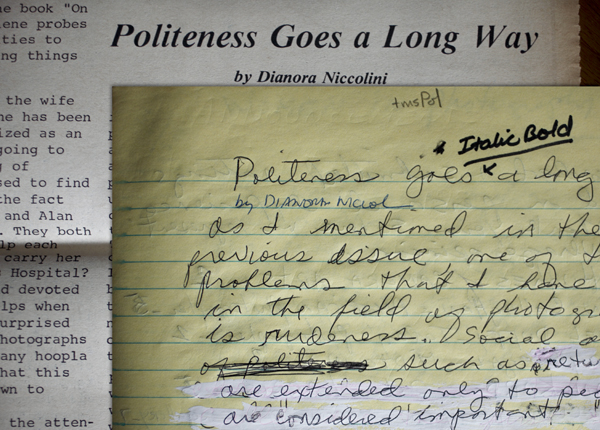 he book "On
ene probes
ties to
ng things
Politeness Goes a Long Way
by Dianora Niccolini
the wife
ne has been
ized as an
going to
g of
sed to find
the fact
and Alan
. They both
lp each
carry her
s Hospital?
d devoted
lps when
urprised
hotographs
any hoopla
hat this
wn to
the atten-
tmsPol
* Italic Bold
Politeness goes a long
by DIANORA Niccol
as I mentioned in the
previous issue, one of t
problems that I have
in the field of photogr
is rudeness. Social a
such as retu
are extended only to peo
are "considered important".